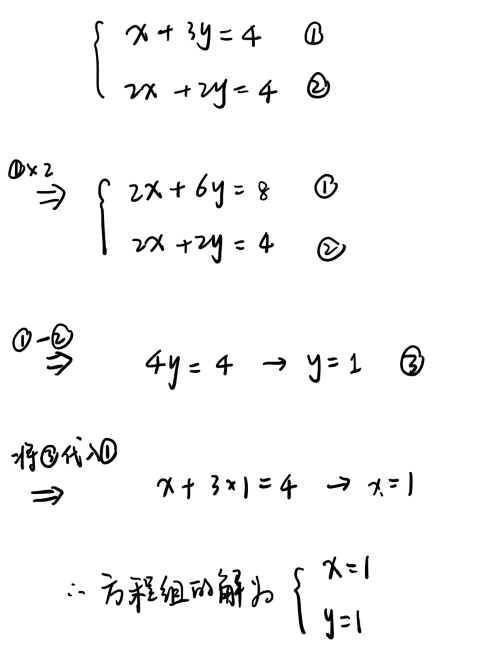 { x + 3y = 4 ①
2x + 2y = 4 ②
①×2
⇒ { 2x + 6y = 8 ①
2x + 2y = 4 ②
①-②
⇒ 4y = 4 → y = 1 ③
将③代入①
⇒ x + 3×1 = 4 → x = 1
∴ 方程组的解为 { x = 1
y = 1